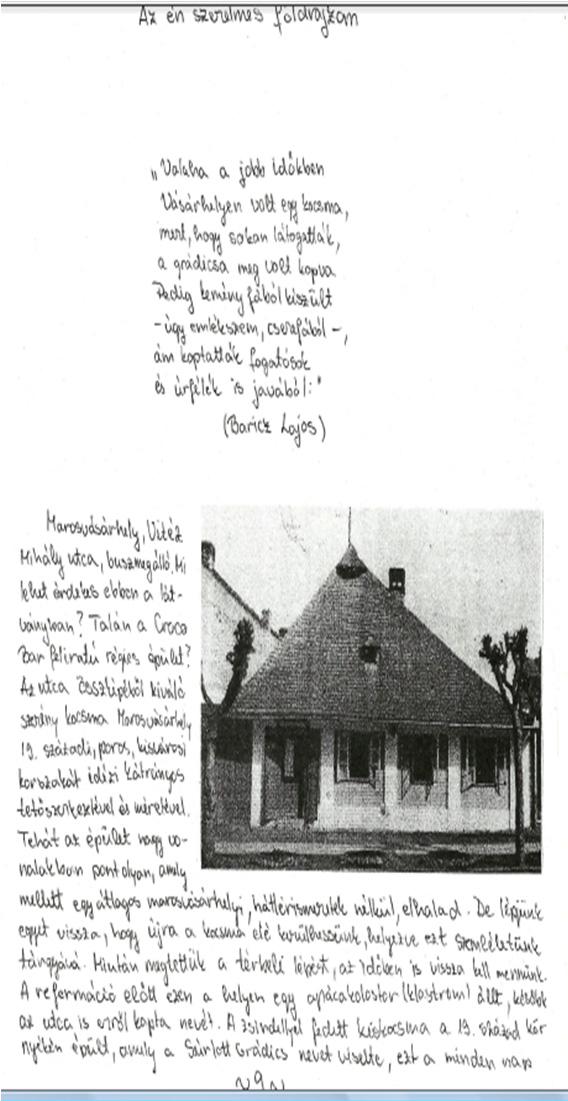 Az én szerelmes földrajzom
„Valaha a jobb időkben
Vásárhelyen volt egy kocsma,
mert, hogy sokan látogatták,
a grádicsa meg volt kopva.
Pedig kemény fából készült
- úgy emlékszem, cserefából -,
ám koptatták fogatósok
és úrfélék is javából:"
(Baricz Lajos)
Marosvásárhely, Vitéz
Mihály utca, buszmegálló. Mi
lehet érdekes ebben a lát-
ványban? Talán a Croco
Bar feliratú régies épület?
Az utca összképéből kiváló
szerény kocsma Marosvásárhely
19. századi, poros, kisvárosi
korszakát idézi kátrányos
tetőszerkezetével és méretével.
Tehát az épület nagy vo-
nalakban pont olyan, amely
mellett egy átlagos marosvásárhelyi, háttérismeretek nélkül, elhalad. De lépjünk
egyet vissza, hogy újra a kocsma elé kerülhessünk, helyezve ezt szemléletünk
tárgyává. Miután megtettük a térbeli lépést, az időben is vissza kell mennünk.
A reformáció előtt ezen a helyen egy apácakolostor (klastrom) állt, később
az utca is erről kapta nevét. A zsindellyel fedett kiskocsma a 19. század kör
nyékén épült, amely a Sárlott Grádics nevet viselte, ezt a minden nap
~9~